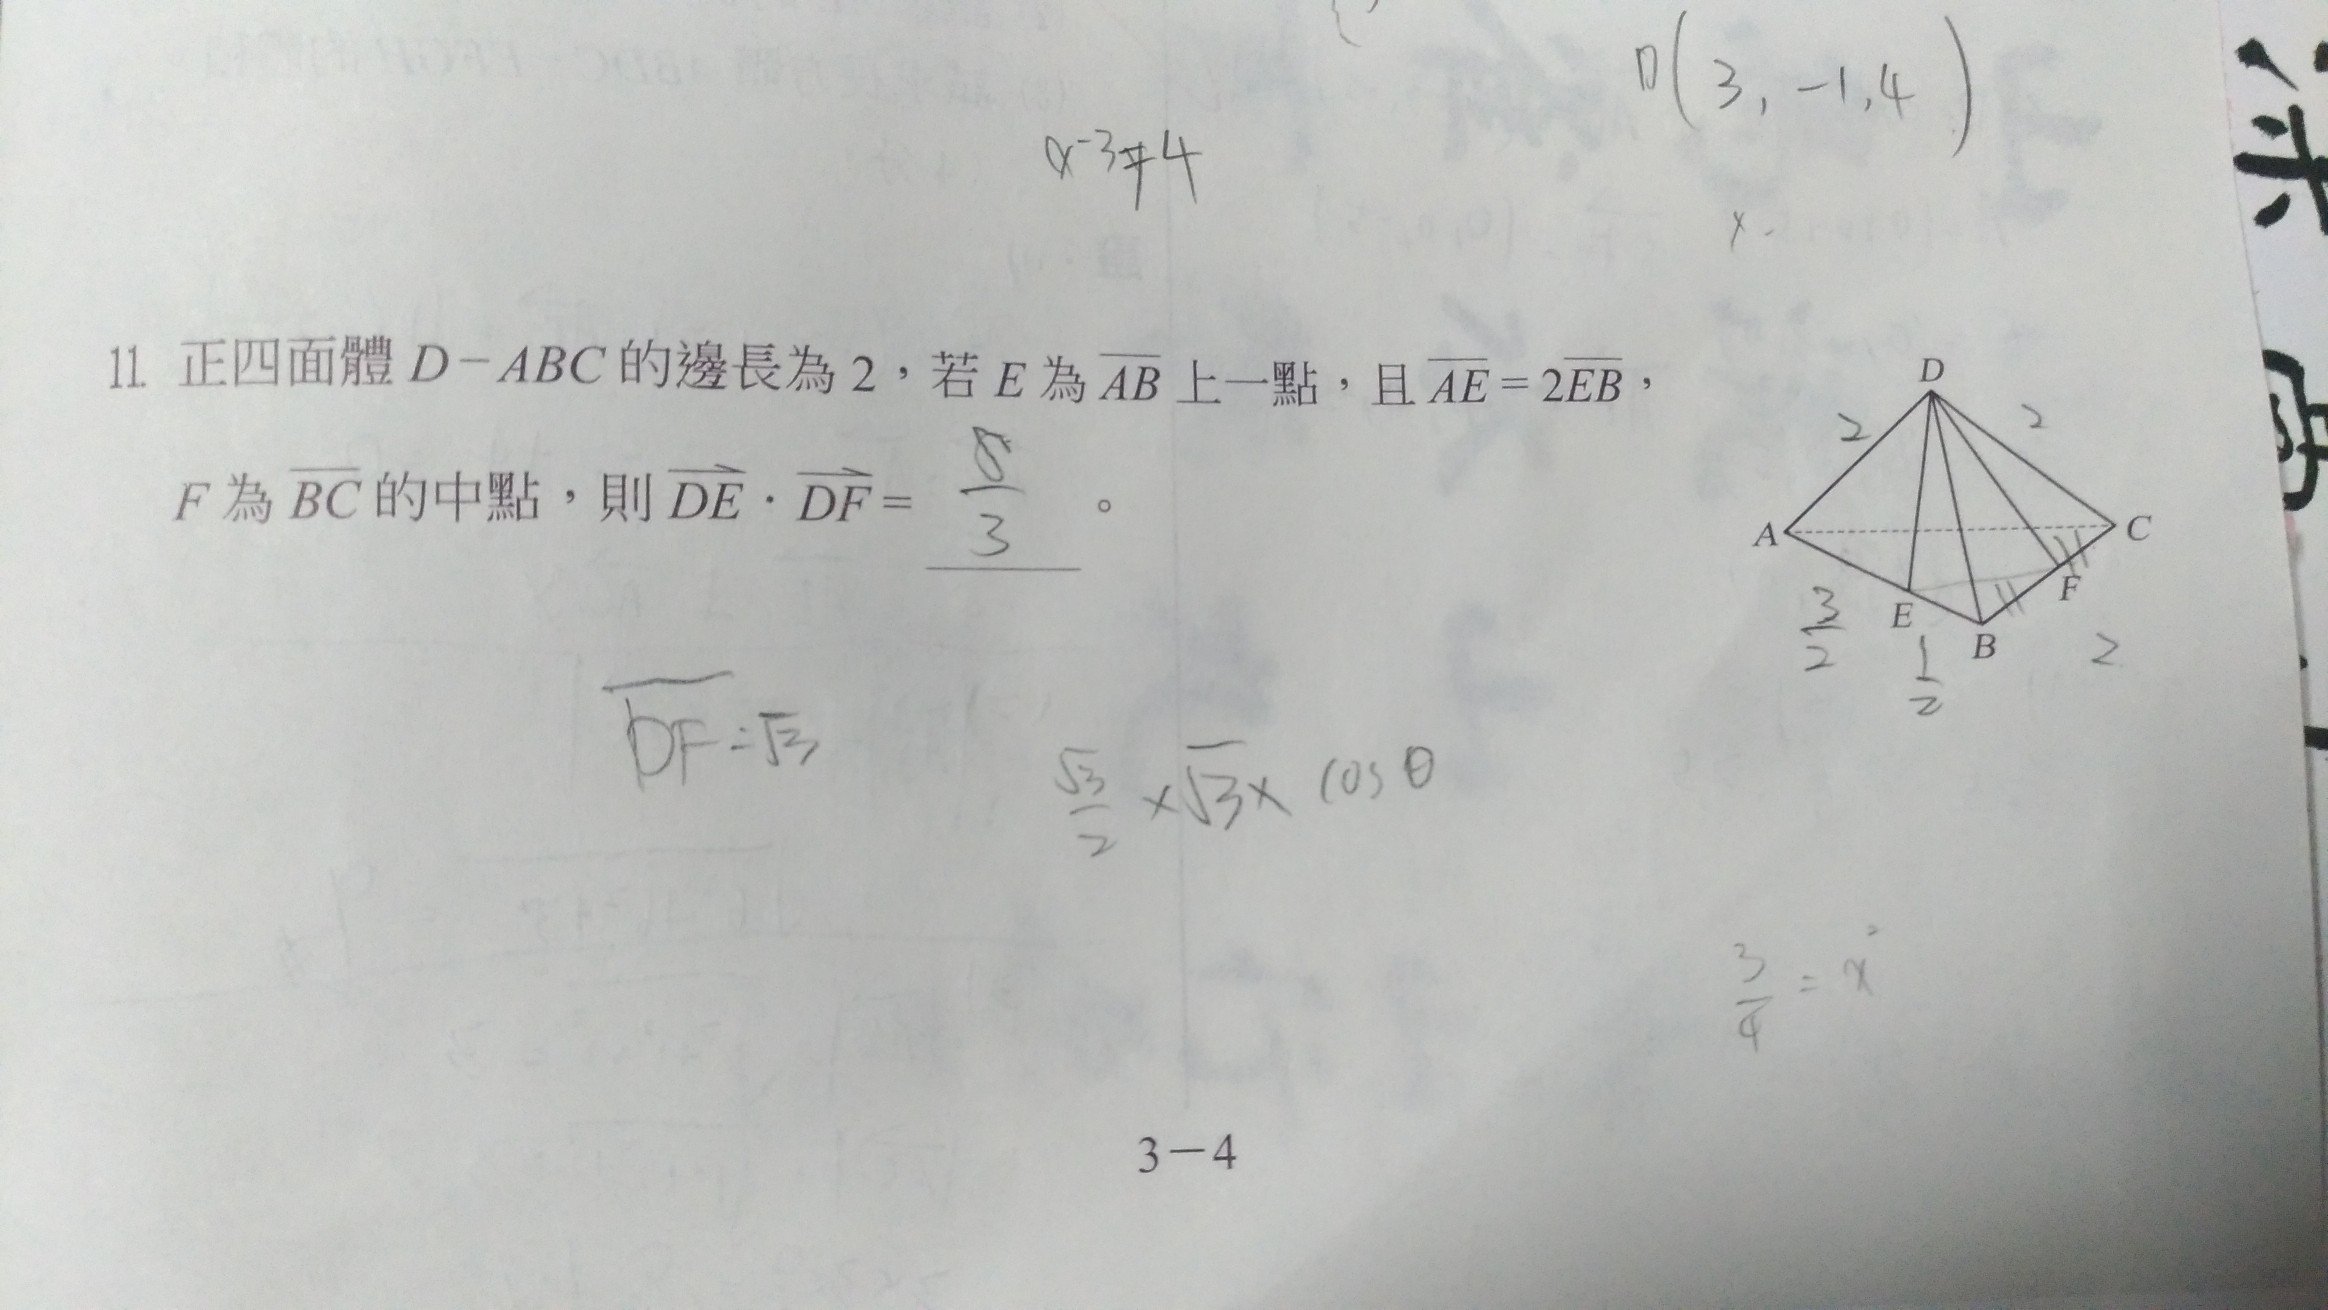 D(3, -1, 4)
x-3≠4
x.
11. 正四面體 D－ABC 的邊長為 2，若 E 為 AB 上一點，且 AE = 2EB，
F 為 BC 的中點，則 DE · DF = 8/3 。
D
2
2
A
C
E
F
B
3/2
1/2
2
DF = √3
√3/2 × √3 × cos θ
3/4 = x²
3－4